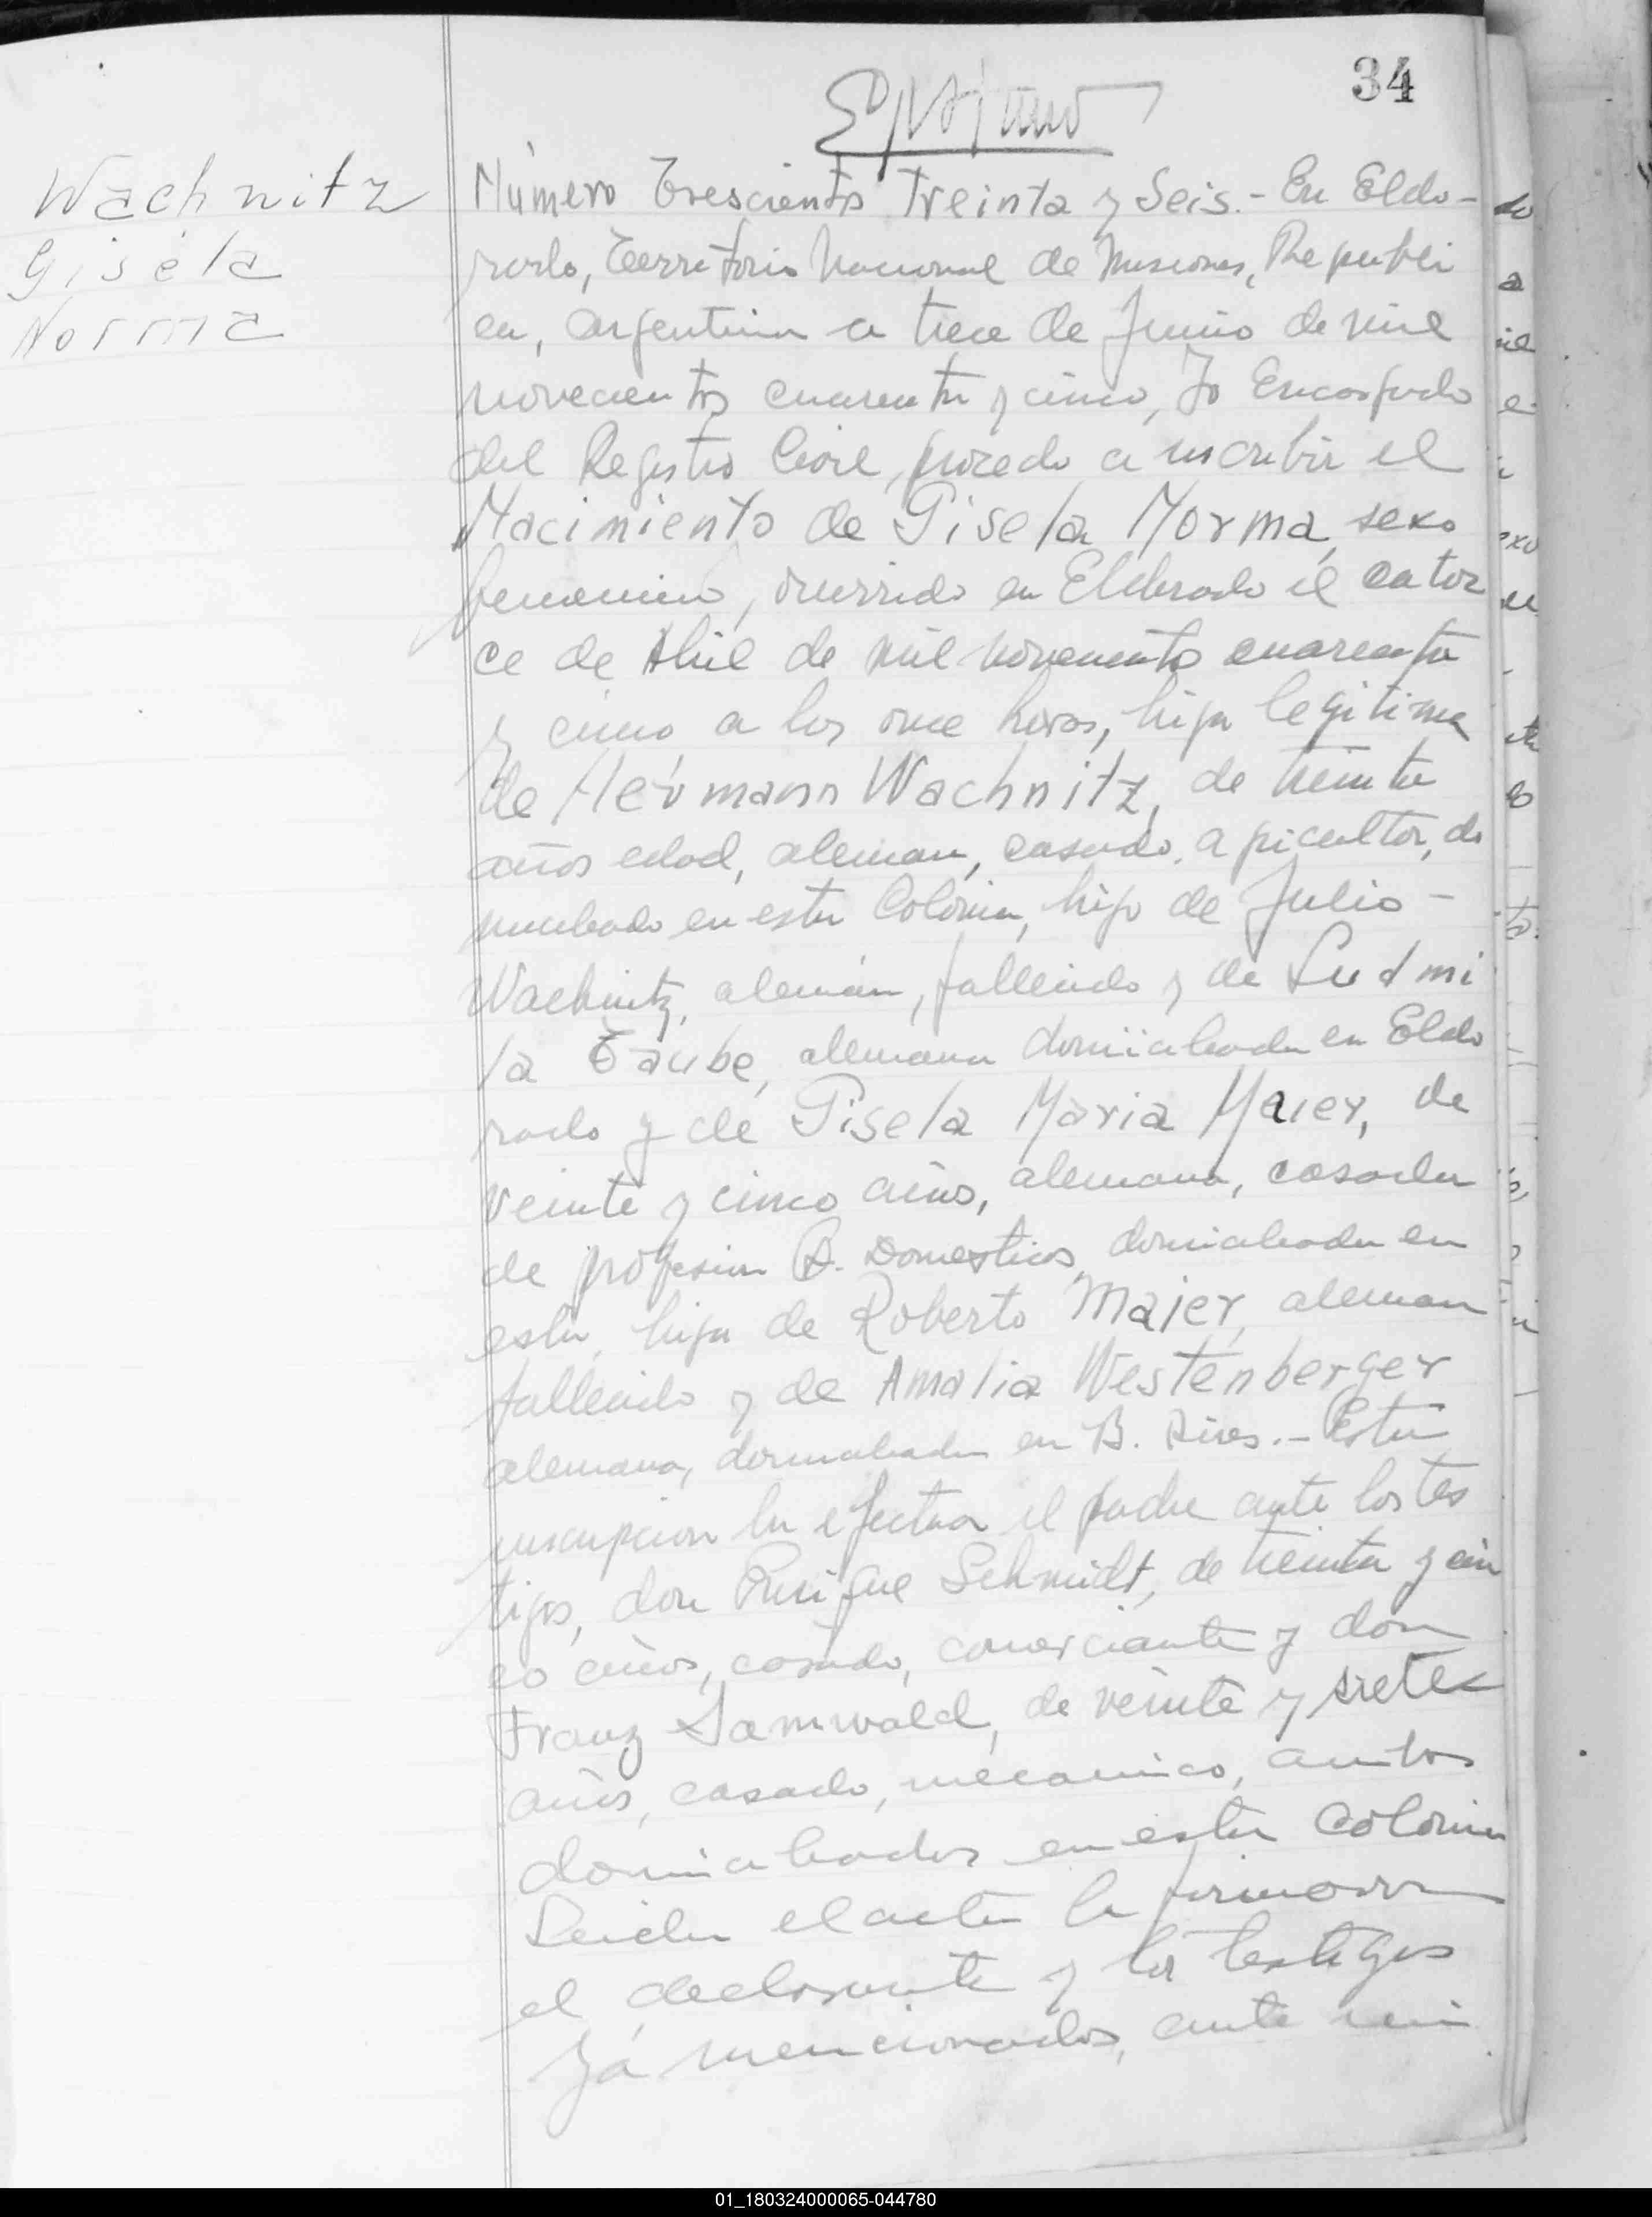 34
Wachnitz
Gisela
Norma
Número Trescientos Treinta y Seis.- En Eldo-
rado, Territorio Nacional de Misiones, Republi
ca, Argentina a trece de Junio de mil
novecientos cuarenta y cinco, Yo Encargado
del Registro Civil, procedo a inscribir el
Nacimiento de Gisela Norma, sexo
femenino, ocurrido en Eldorado el cator
ce de Abril de mil novecientos cuarenta
y cinco a las once horas, hija legitima
de Hermann Wachnitz, de treinta
años edad, aleman, casado, apicultor, do
miciliado en esta Colonia, hijo de Julio -
Wachnitz, alemán, fallecido y de Ludmi
la Taube, alemana domiciliada en Eldo
rado y de Gisela Maria Maier, de
veinte y cinco años, alemana, casada
de profesion Q. Domesticos, domiciliada en
esta, hija de Roberto Majer, aleman
fallecido y de Amalia Westenberger
alemana, domiciliada en B. Aires.- Esta
inscripcion la efectua el padre ante los tes
tigos, don Enrique Schmidt, de treinta y cin
co años, casado, comerciante y don
Franz Samwald, de veinte y siete
años, casado, mecanico, ambos
domiciliados en esta Colonia
Leida el acta la firmaron
el declarante y los testigos
ya mencionados, ante mi
01_180324000065-044780